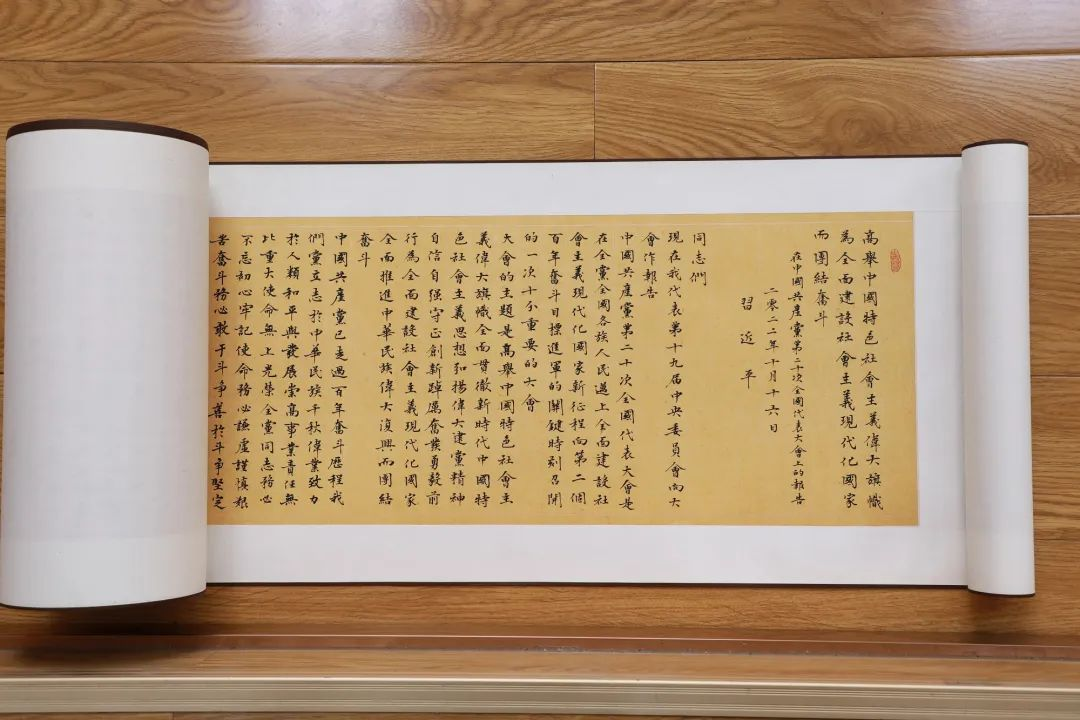 高舉中國特色社會主義偉大旗幟
為全面建設社會主義現代化國家
而團結奮斗
在中國共產黨第二十次全國代表大會上的報告
二零二二年十月十六日
習近平
同志們
現在我代表第十九届中央委員會向大
會作報告
中國共產黨第二十次全國代表大會是
在全黨全國各族人民邁上全面建設社
會主義現代化國家新征程向第二個
百年奮斗目標進軍的關鍵時刻召開
的一次十分重要的大會
大會的主題是高舉中國特色社會主
義偉大旗幟全面貫徹新時代中國特
色社會主義思想弘揚偉大建黨精神
自信自强守正創新踔厲奮發勇毅前
行為全面建設社會主義現代化國家
全面推進中華民族偉大復興而團結
奮斗
中國共產黨已走過百年奮斗歷程我
們黨立志於中華民族千秋偉業致力
於人類和平與發展崇高事業責任無
比重大使命無上光榮全黨同志務必
不忘初心牢記使命務必謙虛謹慎艱
苦奮斗務必敢于斗爭善於斗爭堅定